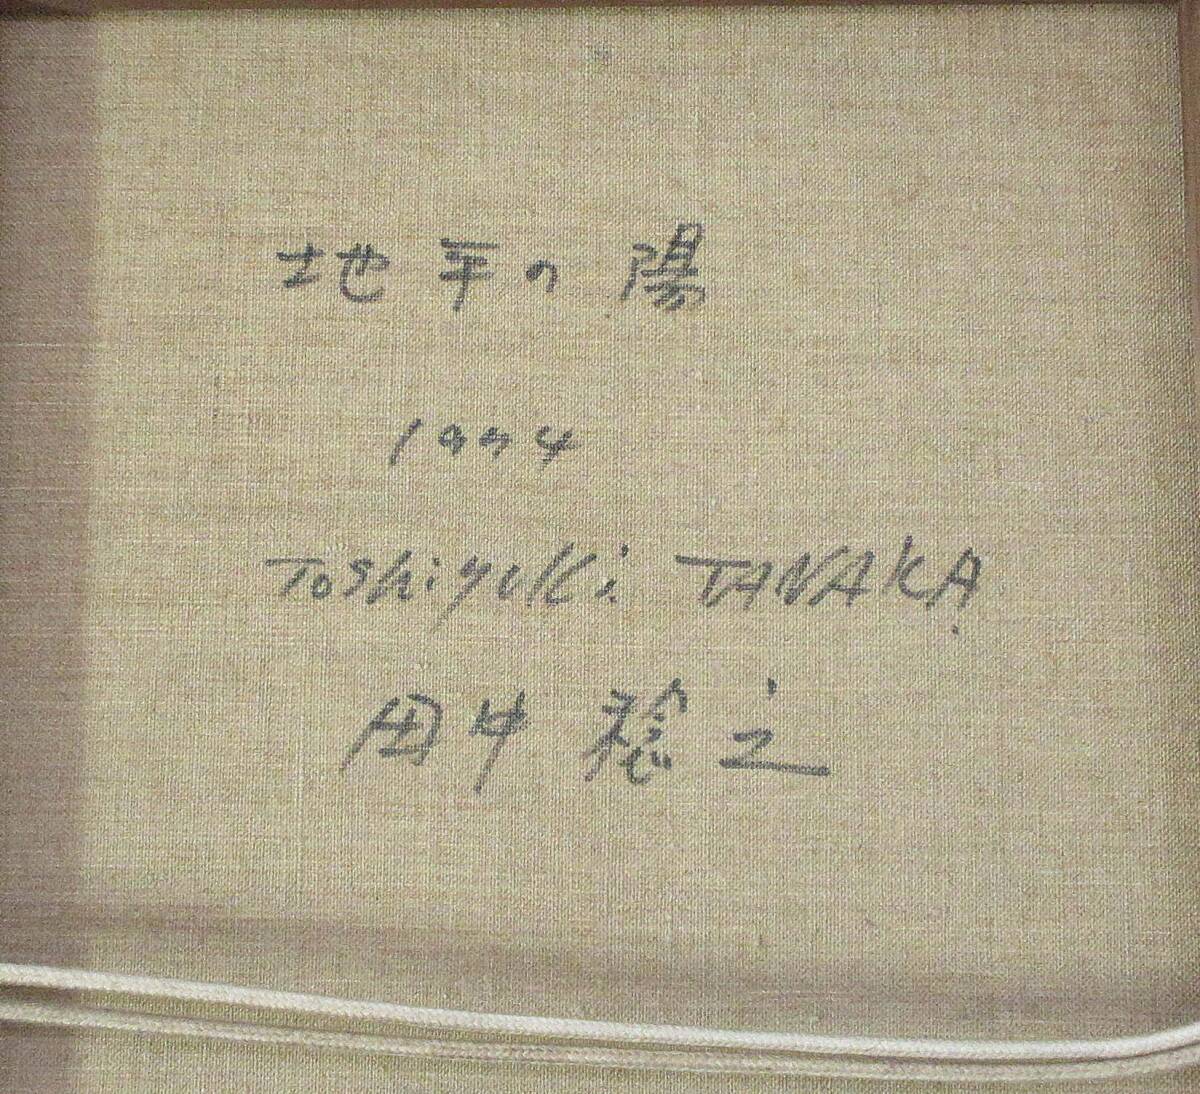 地平の陽
1974
Toshiyuki TANAKA
田中 稔之